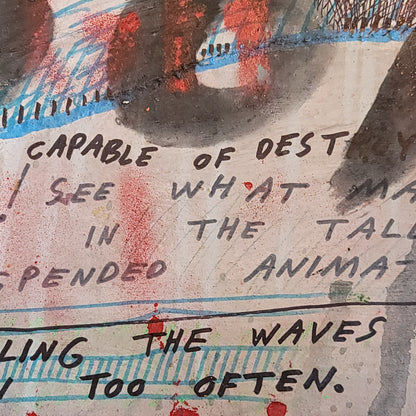 CAPABLE OF DESTROY
I SEE WHAT MA
IN THE TALL
SPENDED ANIMAT
LING THE WAVES
TOO OFTEN.